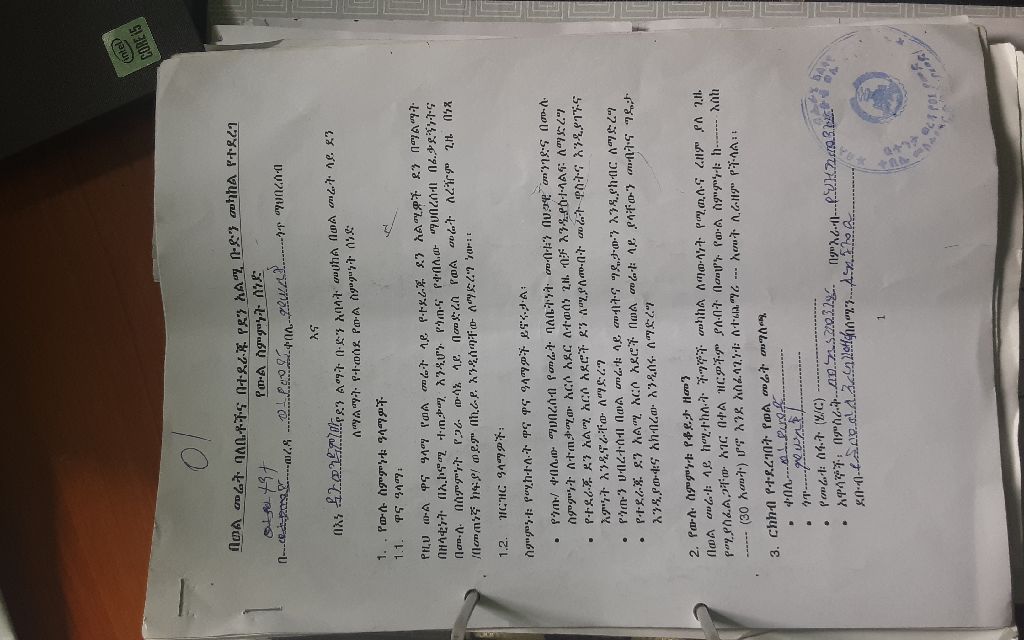 በወል መሬት ባለቤቶችና በተደራጁ የደን አልሚ ቡድን መካከል የተደረገ
የውል ስምምነት ሰነድ
በ ወረዳ ቀበሌ ጎጥ ማህበረሰብ
እና
በእነ የደን ልማት ቡድን አባላት መሀከል በወል መሬት ላይ ደን
ለማልማት የተወሰደ የውል ስምምነት ሰነድ
1. . የውሉ ስምምነቱ ዓላማዎች
1.1. ዋና ዓላማ፡
የዚህ ውል ዋና ዓላማ የወል መሬት ላይ የተደራጁ ደን አልሚዎች ደን በማልማት
በዘላቂነት በኢኮኖሚ ተጠቃሚ እንዲሆኑ የጎጡና የቀበሌው ማህበረሰብ በፈቃደኝነትና
በሙሉ በስምምነት የጋራ ውሳኔ ላይ በመድረስ የወል መሬት ለረዥም ጊዜ በነጻ
/በመጠነኛ ክፍያ/ ወይም በኪራይ እንዲሰጣቸው ለማድረግ ነው፡፡
1.2. ዝርዝር ዓላማዎች፡
ስምምነቱ የሚከተሉት ዋና ዋና ዓላማዎች ይኖሩታል፡
• የጎጡ/ ቀበሌው ማህበረሰብ የመሬት ባለቤትነት መብቱን በህጋዊ መንገድና በሙሉ
ስምምነት ለተጠቃሚው አርሶ አደር ለተወሰነ ጊዜ ብቻ እንዲያስተላልፍ ለማድረግ
• የተደራጁ ደን አልሚ አርሶ አደሮች ደን ሚያለሙበት መሬት ዋስትና እንዲያገኙና
እምነት እንዲኖራቸው ለማድረግ
• የጎጡን ህብረተሰብ በወል መሬቱ ላይ መብትና ግዴታውን እንዲያከብር ለማድረግ
• የተደራጁ ደን አልሚ አርሶ አደሮች በወል መሬቱ ላይ ያላቸውን መብትና ግዴታ
እንዲያውቁና አክብረው እንዲሰሩ ለማድረግ
2. የውሉ ስምምነቱ የቆይታ ዘመን
በወል መሬቱ ላይ ከሚተከሉት ችግኞች መካከል ለጣውላነት የሚውሉና ረዘም ያለ ጊዜ
የሚያስፈልጋቸው አገር በቀል ዝርያዎም ያሉበት በመሆኑ የውል ስምምነቱ ከ------- እስከ
------ (30 አመት) ሆኖ እንደ አስፈላጊነቱ ለተጨማሪ --- አመት ሊራዘም የችላል፡፡
3. ርክክብ የተደረገበት የወል መሬት መግለጫ
• ቀበሌ
• ጎጥ
• የመሬቱ ስፋት (ሄ/ር)
• አዋሳኞች፡ በምስራቅ በምእራብ
ደቡብ በሰሜን
1